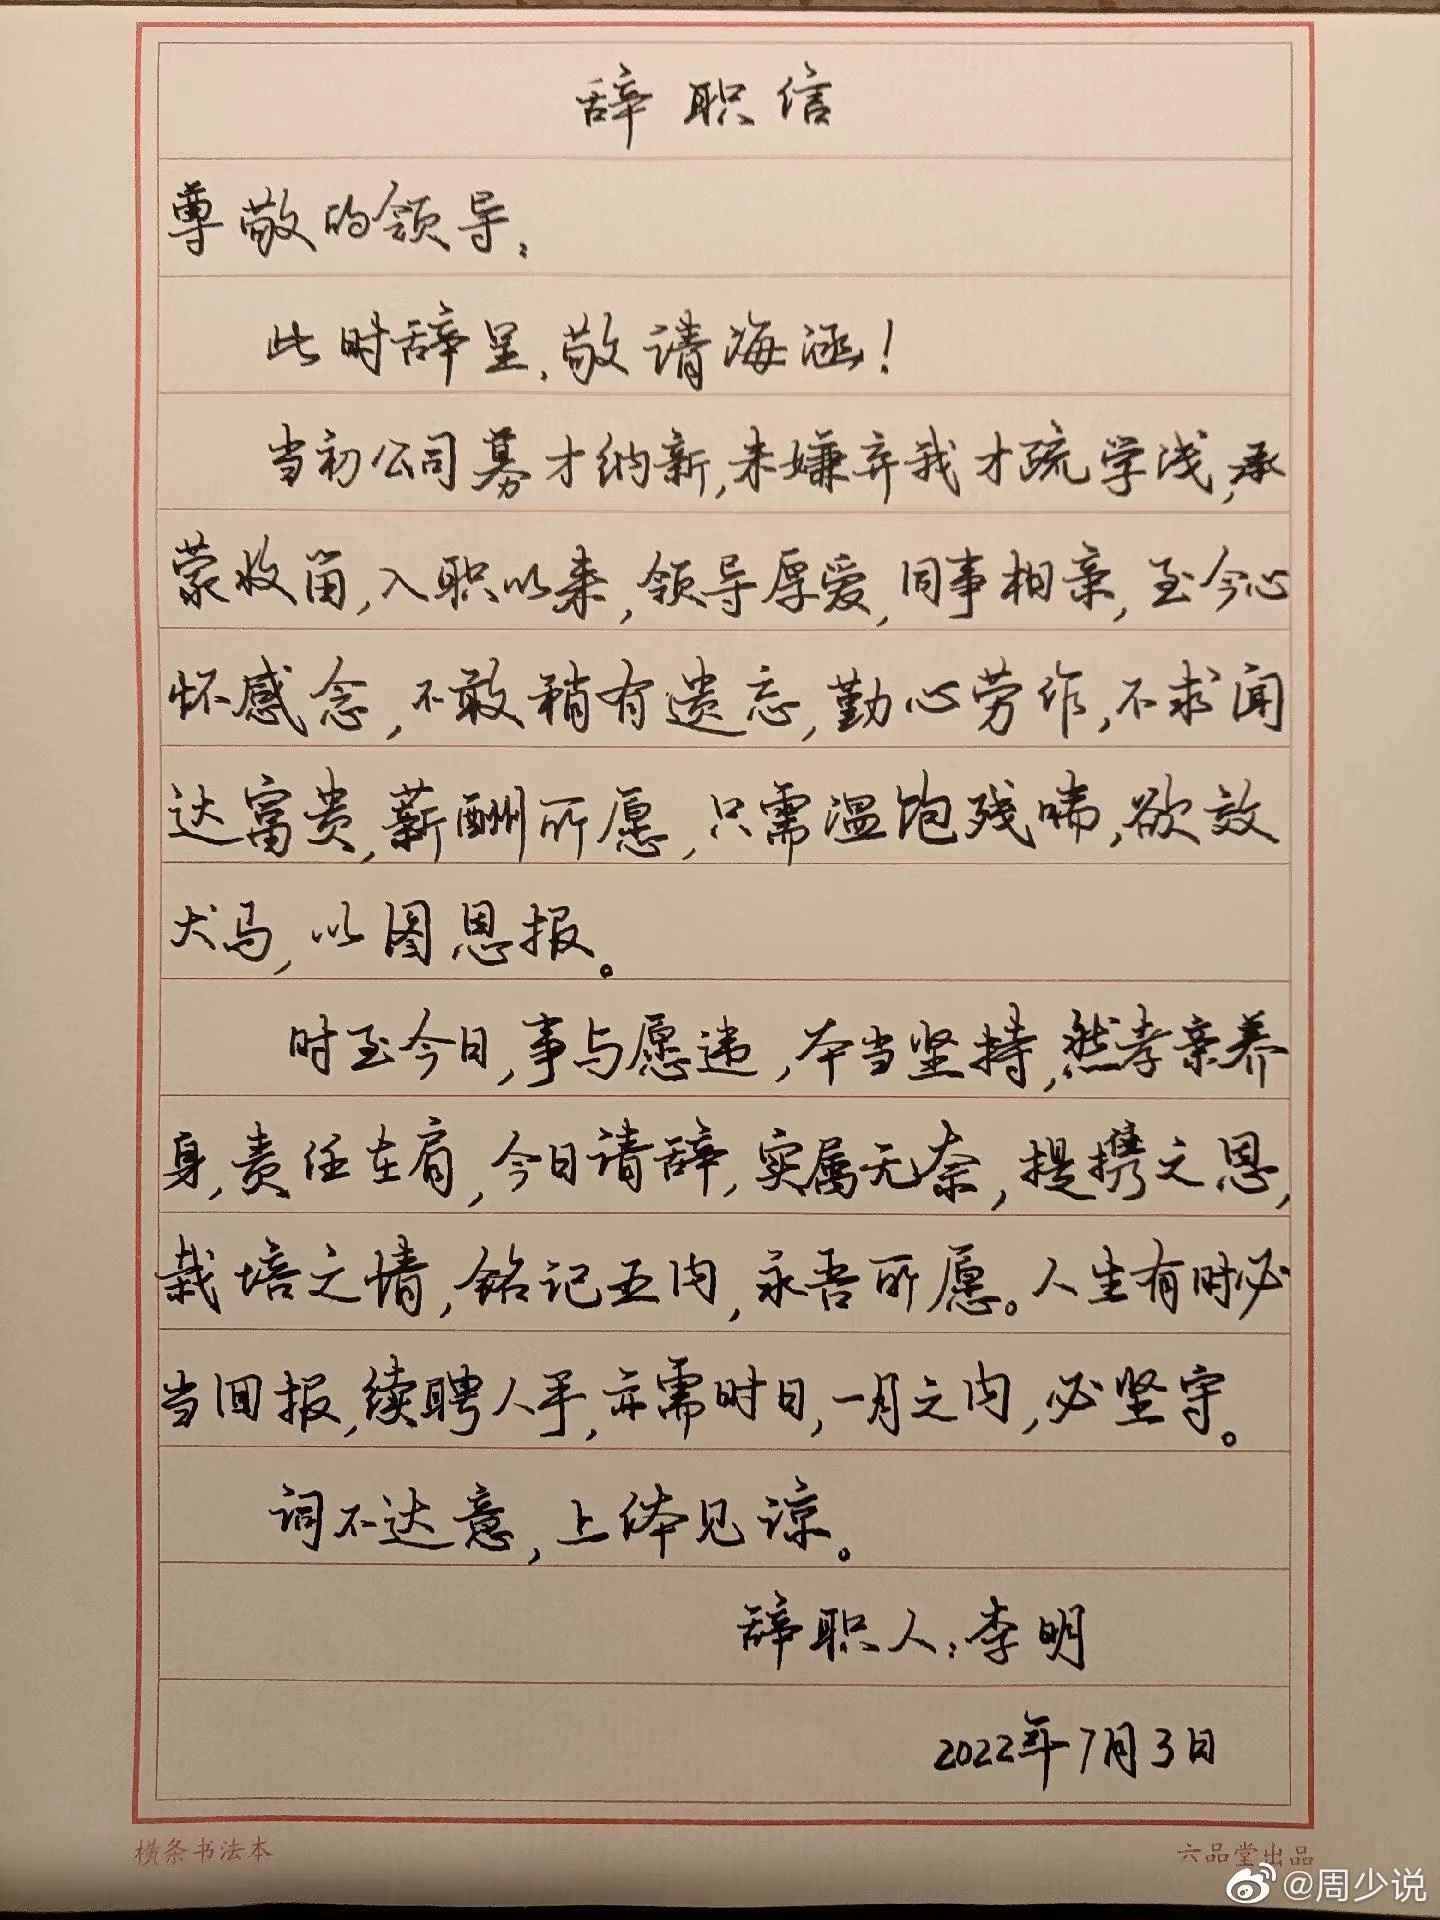 辞职信
尊敬的领导：
此时辞呈，敬请海涵！
当初公司募才纳新，未嫌弃我才疏学浅，承
蒙收留，入职以来，领导厚爱，同事相亲，至今心
怀感念，不敢稍有遗忘，勤心劳作，不求闻
达富贵，薪酬所愿，只需温饱残喘，欲效
犬马，以图恩报。
时至今日，事与愿违，本当坚持，然孝亲养
身，责任在肩，今日请辞，实属无奈，提携之恩，
栽培之情，铭记五内，永吾所愿。人生有时必
当回报，续聘人手，亦需时日，一月之内，必坚守。
词不达意，上体见谅。
辞职人：李明
2022年7月3日
横条书法本
六品堂出品
@周少说